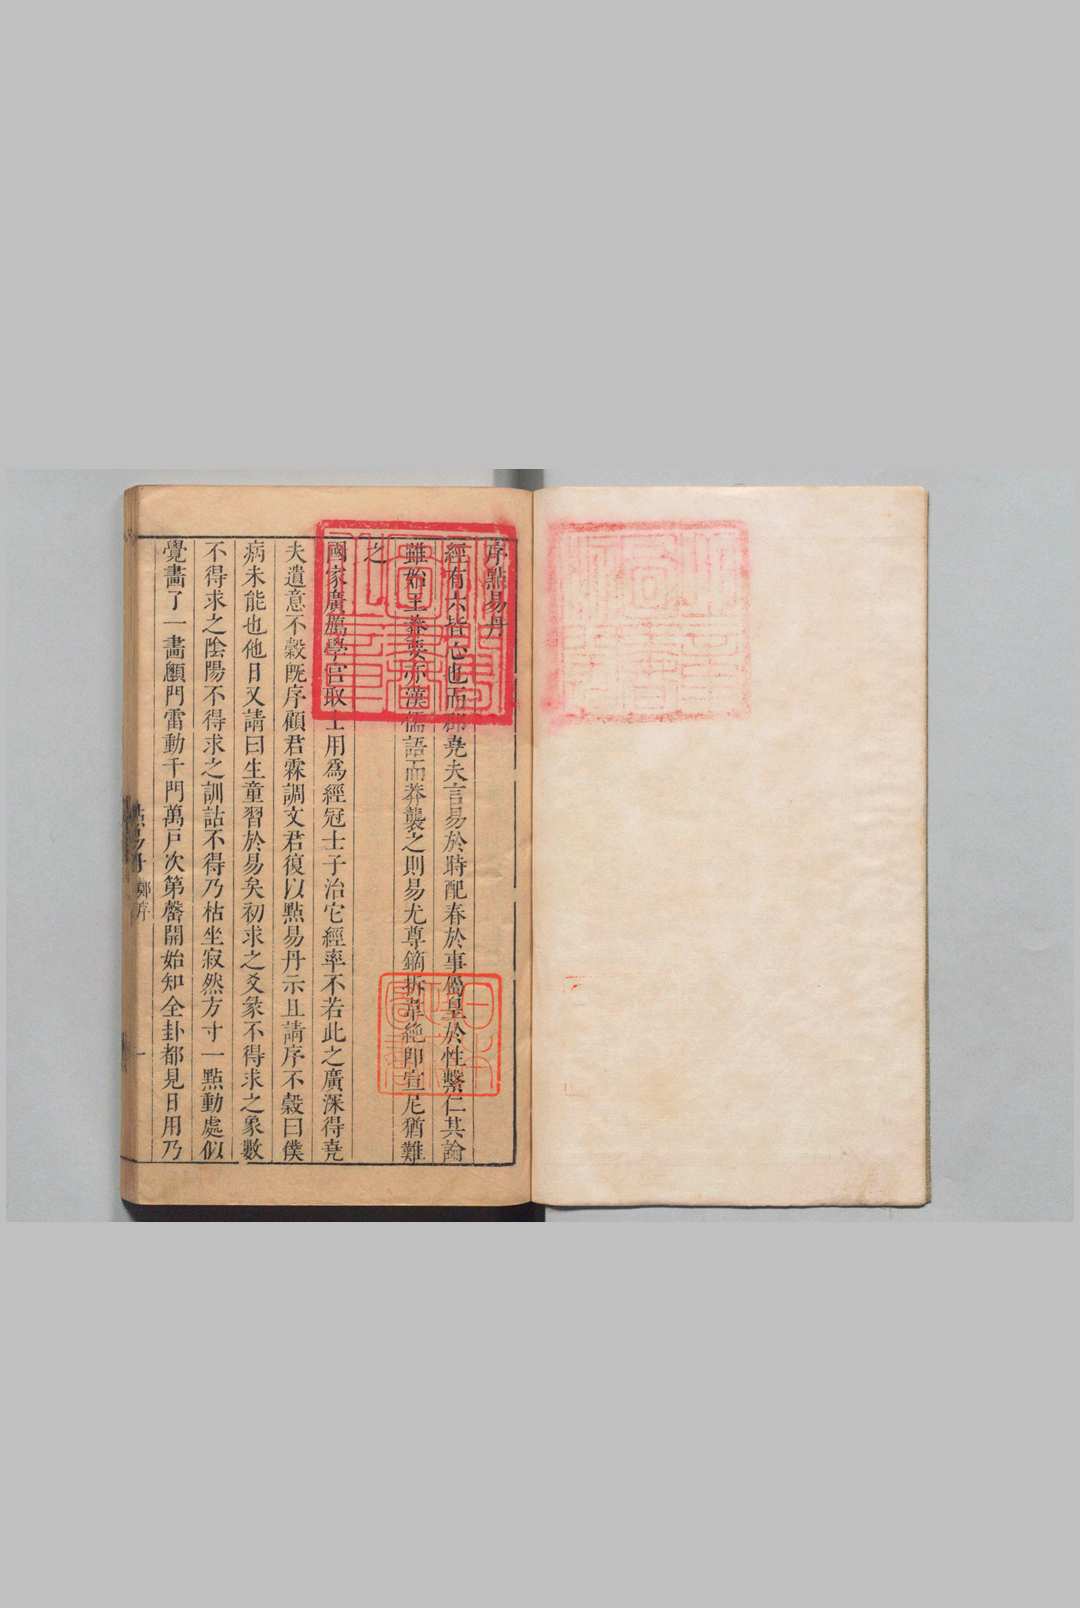 序點易丹
經有六皆心也而邵堯夫言易於時配春於事屬皇於性繫仁其論
雖始王莽要亦漢儒語而莽襲之則易尤尊鏑拆韋絶即宣尼猶難
之
國家廣厲學官取士用爲經冠士子治它經率不若此之廣深得堯
夫遺意不穀旣序顧君霖調文君復以點易丹示且請序不穀曰僕
病未能也他日又請曰生童習於易矣初求之爻彖不得求之象數
不得求之陰陽不得求之訓詁不得乃枯坐寂然方寸一點動處似
覺畫了一畫顧門雷動千門萬戸次第罄開始知全卦都見日用乃
點易丹 鄭序 一